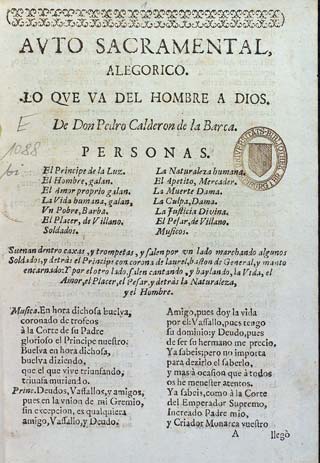 AVTO SACRAMENTAL,
ALEGORICO.
LO QVE VA DEL HOMBRE A DIOS.
De Don Pedro Calderon de la Barca.
E
1088
PERSONAS.
El Principe de la Luz.
El Hombre, galan.
El Amor proprio galan.
La Vida humana, galan,
Vn Pobre, Barba.
El Placer, de Villano.
Soldados.
La Naturaleza humana.
El Apetito, Mercader.
La Muerte Dama.
La Culpa, Dama.
La Justicia Divina.
El Pesar, de Villano.
Musicos.
Suenan dentro caxas, y trompetas, y salen por vn lado marchando algunos
Soldados, y detràs el Principe con corona de laurel, baston de General, y manto
encarnado: Y por el otro lado, salen cantando, y baylando, la Vida, el
Amor, el Placer, el Pesar, y detràs la Naturaleza,
y el Hombre.
Musica. En hora dichosa buelva,
coronado de trofeos
à la Corte de su Padre
glorioso el Principe nuestro.
Buelva en hora dichosa,
buelva diziendo,
que el que vive triunfando,
triunfa muriendo.
Princ. Deudos, Vassallos, y amigos,
pues en la vnion de mi Gremio,
sin excepcion, es qualquiera
amigo, Vassallo, y Deudo.
Amigo, pues doy la vida
por el: Vassallo, pues tengo
su dominio; y Deudo, pues
de ser su hermano me precio,
Ya sabeis; pero no importa
para dezirlo el saberlo,
y mas à ocasion que à todos
os he menester atentos.
Ya sabeis, como à la Corte
del Emperador Supremo,
Increado Padre mio,
y Criador Monarca vuestro
A
llegò